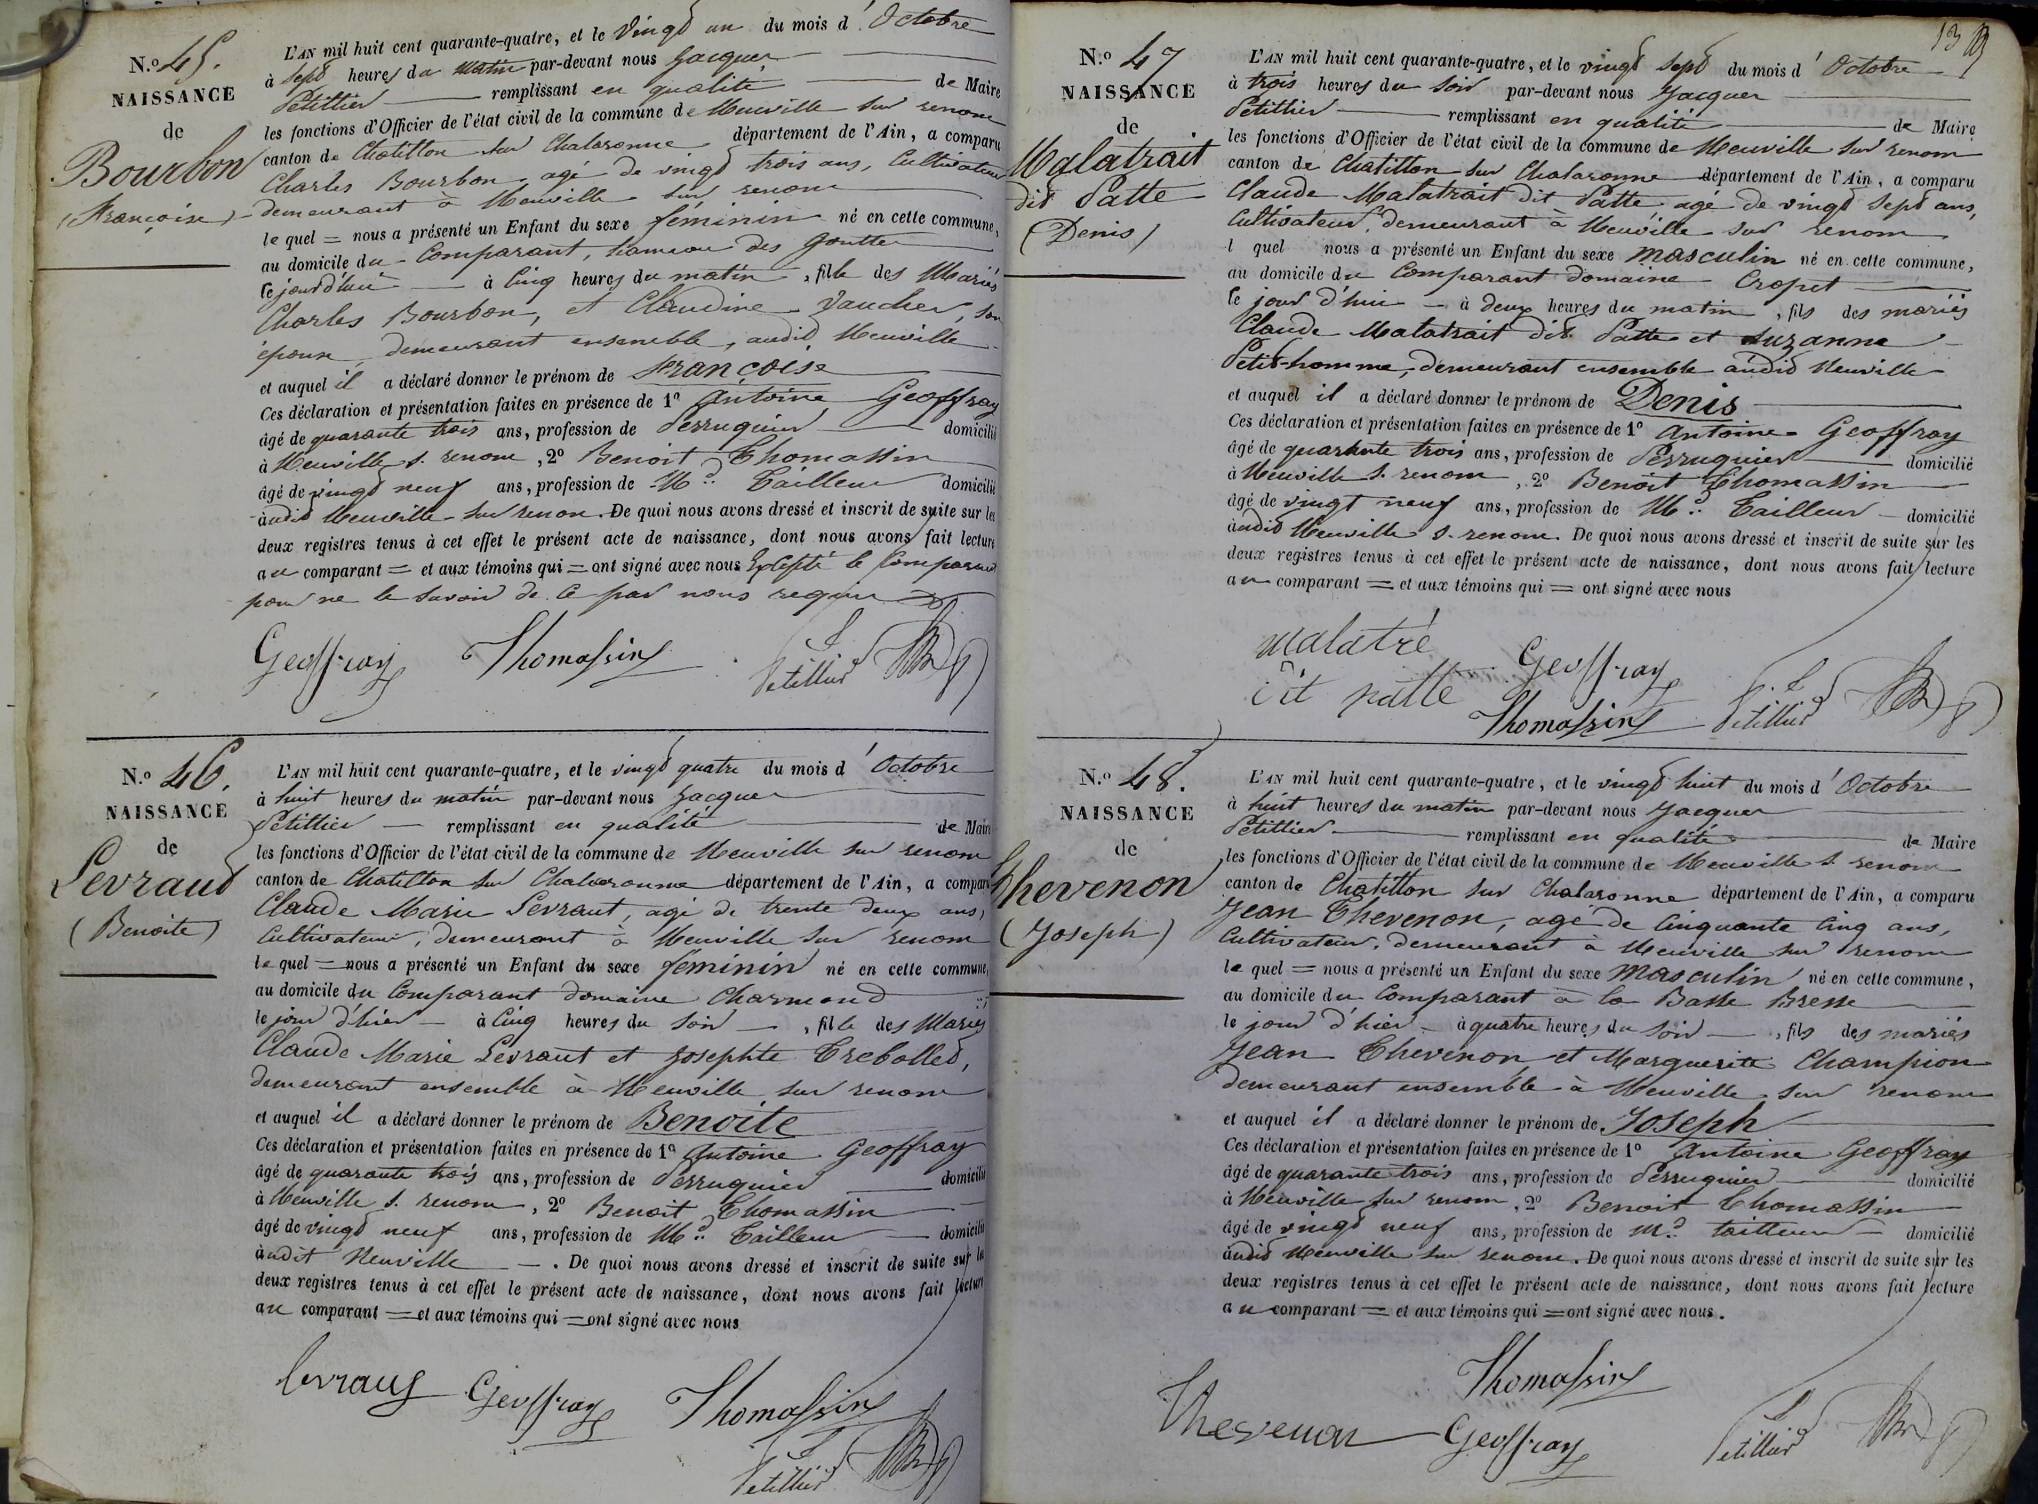 N.º 45.
NAISSANCE
de
Bourbon
(Françoise)
L'AN mil huit cent quarante-quatre, et le vingt un du mois d'Octobre
à sept heures du matin par-devant nous Jacques
Petillier remplissant en qualité de Maire
les fonctions d'Officier de l'état civil de la commune de Neuville sur renom
canton de Chatillon sur Chalaronne département de l'Ain, a comparu
Charles Bourbon, agé de vingt trois ans, Cultivateur
demeurant à Neuville sur renom
le quel = nous a présenté un Enfant du sexe féminin né en cette commune,
au domicile du Comparant, hameau des Goutte
le jourd'hui à Cinq heures du matin, fille des Mariés
Charles Bourbon, et Claudine Vaucher, son
épouse, demeurant ensemble, audit Neuville
et auquel il a déclaré donner le prénom de Françoise
Ces déclaration et présentation faites en présence de 1º Antoine Geoffray
âgé de quarante trois ans, profession de Perruquier domicilié
à Neuville s. renom, 2º Benoit Thomassin
âgé de vingt neuf ans, profession de Md. Tailleur domicilié
audit Neuville sur renom. De quoi nous avons dressé et inscrit de suite sur les
deux registres tenus à cet effet le présent acte de naissance, dont nous avons fait lecture
au comparant = et aux témoins qui = ont signé avec nous Excepté le Comparant
pour ne le savoir de ce par nous requis
Geoffray Thomassin Petillier
N.º 46.
NAISSANCE
de
Levraud
(Benoite)
L'AN mil huit cent quarante-quatre, et le vingt quatre du mois d'Octobre
à huit heures du matin par-devant nous Jacques
Petillier remplissant en qualité de Maire
les fonctions d'Officier de l'état civil de la commune de Neuville sur renom
canton de Chatillon sur Chalaronne département de l'Ain, a comparu
Claude Marie Levraut, agé de trente deux ans,
Cultivateur, demeurant à Neuville sur renom
le quel = nous a présenté un Enfant du sexe féminin né en cette commune,
au domicile du Comparant domaine Charmond
le jour d'hier à Cinq heures du soir, fille des Mariés
Claude Marie Levraut et Josephte Trebollet,
demeurant ensemble à Neuville sur renom
et auquel il a déclaré donner le prénom de Benoite
Ces déclaration et présentation faites en présence de 1º Antoine Geoffray
âgé de quarante trois ans, profession de Perruquier domicilié
à Neuville s. renom, 2º Benoit Thomassin
âgé de vingt neuf ans, profession de Md. Tailleur domicilié
audit Neuville. De quoi nous avons dressé et inscrit de suite sur les
deux registres tenus à cet effet le présent acte de naissance, dont nous avons fait lecture
au comparant = et aux témoins qui = ont signé avec nous
levraus Geoffray Thomassin
Petillier
13
N.º 47
NAISSANCE
de
Malatrait
dit Patte
(Denis)
L'AN mil huit cent quarante-quatre, et le vingt sept du mois d'Octobre
à trois heures du soir par-devant nous Jacques
Petillier remplissant en qualité de Maire
les fonctions d'Officier de l'état civil de la commune de Neuville sur renom
canton de Chatillon sur Chalaronne département de l'Ain, a comparu
Claude Malatrait dit Patte agé de vingt sept ans,
Cultivateur, demeurant à Neuville sur renom
l quel nous a présenté un Enfant du sexe masculin né en cette commune,
au domicile du Comparant domaine Cropet
le jour d'hui à deux heures du matin, fils des mariés
Claude Malatrait dit Patte et Suzanne
Petit-homme, demeurant ensemble audit Neuville
et auquel il a déclaré donner le prénom de Denis
Ces déclaration et présentation faites en présence de 1º Antoine Geoffray
âgé de quarante trois ans, profession de Perruquier domicilié
à Neuville s. renom, 2º Benoit Thomassin
âgé de vingt neuf ans, profession de Md. Tailleur domicilié
audit Neuville s. renom. De quoi nous avons dressé et inscrit de suite sur les
deux registres tenus à cet effet le présent acte de naissance, dont nous avons fait lecture
au comparant = et aux témoins qui = ont signé avec nous
malatré Geoffray
dit patte Thomassin Petillier
N.º 48.
NAISSANCE
de
Thevenon
(Joseph)
L'AN mil huit cent quarante-quatre, et le vingt huit du mois d'Octobre
à huit heures du matin par-devant nous Jacques
Petillier remplissant en qualité de Maire
les fonctions d'Officier de l'état civil de la commune de Neuville s. renom
canton de Chatillon sur Chalaronne département de l'Ain, a comparu
Jean Thevenon, agé de Cinquante Cinq ans,
Cultivateur, demeurant à Neuville sur renom
le quel = nous a présenté un Enfant du sexe masculin né en cette commune,
au domicile du Comparant à la Basse Bresse
le jour d'hier à quatre heures du soir, fils des mariés
Jean Thevenon et Marguerite Champion
demeurant ensemble à Neuville sur renom
et auquel il a déclaré donner le prénom de Joseph
Ces déclaration et présentation faites en présence de 1º Antoine Geoffray
âgé de quarante trois ans, profession de Perruquier domicilié
à Neuville sur renom, 2º Benoit Thomassin
âgé de vingt neuf ans, profession de Md. tailleur domicilié
audit Neuville sur renom. De quoi nous avons dressé et inscrit de suite sur les
deux registres tenus à cet effet le présent acte de naissance, dont nous avons fait lecture
au comparant = et aux témoins qui = ont signé avec nous.
Thomassin
Thevenon Geoffray Petillier